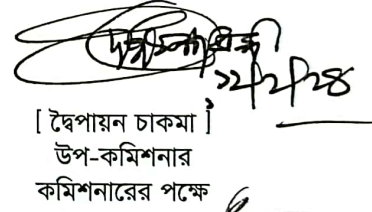 ১২/২/২৪
[ দ্বৈপায়ন চাকমা ]
উপ-কমিশনার
কমিশনারের পক্ষে